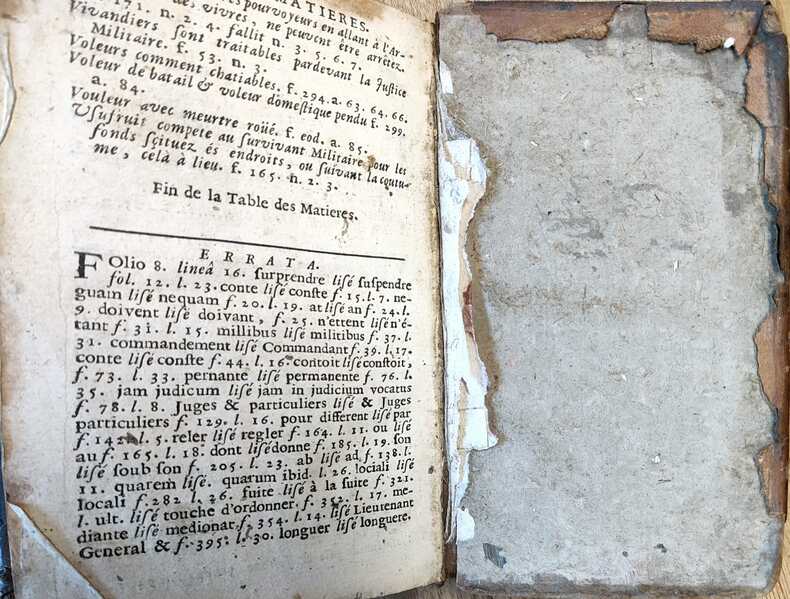 MATIERES.
pourvoyeurs en allant à l'Ar-
de vivres, ne peuvent être arrêtez.
171. n. 2. 4. fallit n. 3. 5. 6. 7.
Vivandiers sont traitables pardevant la Justice
Militaire. f. 53. n. 3.
Voleurs comment chatiables. f. 294. a. 63. 64. 66.
Voleur de batail & voleur domestique pendu f. 299.
a. 84.
Vouleur avec meurtre roüé. f. eod. a. 85.
Usufruit compete au survivant Militaire pour les
fonds scituez és endroits, ou suivant la coutu-
me, celà à lieu. f. 165. n. 2. 3.
Fin de la Table des Matieres.
ERRATA.
FOlio 8. lineâ 16. surprendre lisé suspendre
fol. 12. l. 23. conte lisé conste f. 15. l. 7. ne-
guam lisé nequam f. 20. l. 19. at lisé an f. 24. l.
9. doivent lisé doivant, f. 25. n'ettent lisé n'é-
tant f. 31. l. 15. millibus lisé militibus f. 37. l.
31. commandement lisé Commandant f. 39. l. 17.
conte lisé conste f. 44. l. 16. contoit lisé constoit,
f. 73. l. 33. pernante lisé permanente f. 76. l.
35. jam judicum lisé jam in judicium vocatus
f. 78. l. 8. Juges & particuliers lisé & Juges
particuliers f. 129. l. 16. pour different lisé par
f. 142. l. 5. reler lisé regler f. 164. l. 11. ou lisé
au f. 165. l. 18. dont lisé donne f. 185. l. 19. son
lisé soub son f. 205. l. 23. ab lisé ad f. 138. l.
11. quarem lisé. quarum ibid. l. 26. lociali lisé
locali f. 282 l. 26. fuite lisé à la suite f. 321.
l. ult. lisé touche d'ordonner. f. 352. l. 17. me-
diante lisé medionat f. 354. l. 14. lisé Lieutenant
General & f. 395. l. 30. longuer lisé longuere.